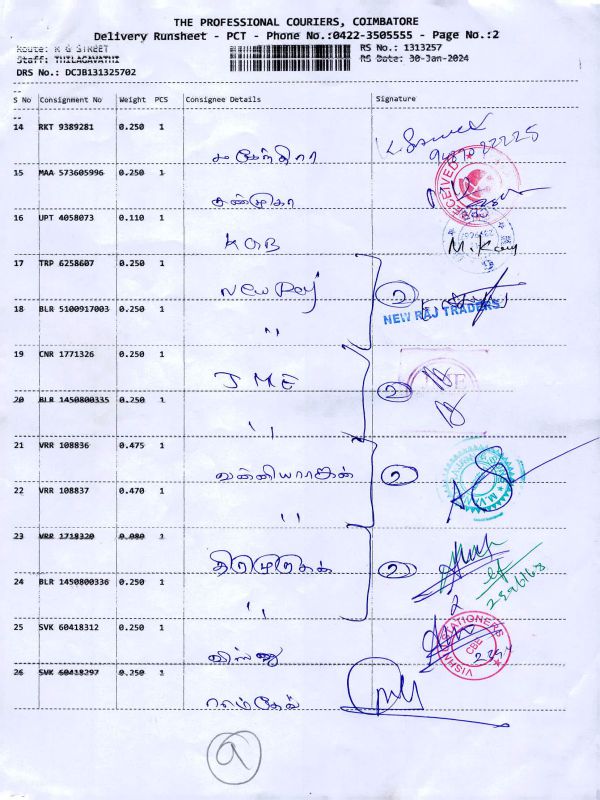 THE PROFESSIONAL COURIERS, COIMBATORE
Delivery Runsheet - PCT - Phone No.:0422-3505555 - Page No.:2
Route: K G STREET
RS No.: 1313257
Staff: THILAGAVATHI
RS Date: 30-Jan-2024
DRS No.: DCJB131325702
S No Consignment No Weight PCS Consignee Details Signature
14 RKT 9389281 0.250 1
15 MAA 573605996 0.250 1
சண்முகா
RECEIVED
16 UPT 4058073 0.110 1
KGB
17 TRP 6258607 0.250 1
New Raj
2
18 BLR 5100917003 0.250 1
"
NEW RAJ TRADERS
19 CNR 1771326 0.250 1
JME
20 BLR 1450800335 0.250 1
"
2
21 VRR 108836 0.475 1
2
22 VRR 108837 0.470 1
"
23 VRR 1718320 0.080 1
திருமுருகன்
2
24 BLR 1450800336 0.250 1
"
25 SVK 60418312 0.250 1
விஷ்ணு
VISHNU STATIONERS
CBE
26 SVK 60418297 0.250 1
9